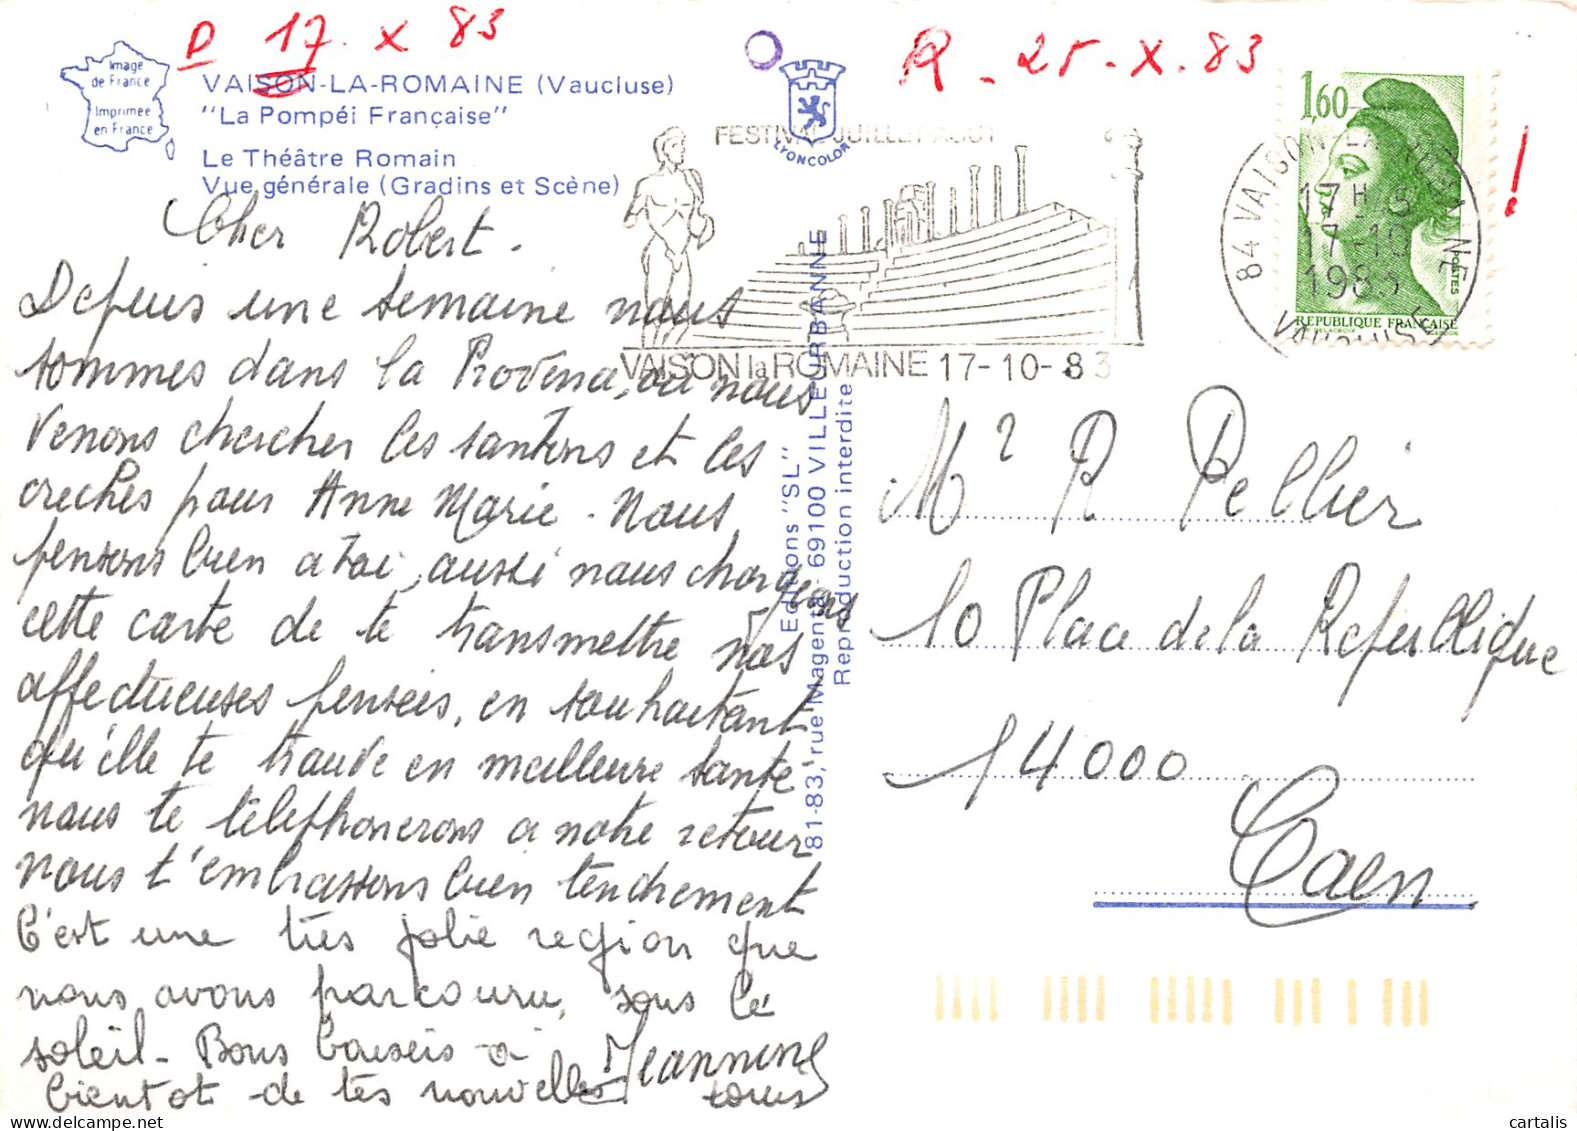 D 17. X 83
R - 25 - X. 83
!
Image
de France
Imprimee
en France
VAISON-LA-ROMAINE (Vaucluse)
"La Pompéi Française"
Le Théâtre Romain
Vue générale (Gradins et Scène)
LYONCOLOR
FESTIVAL JUILLET AOUT
VAISON la ROMAINE 17-10-83
1,60
POSTES
REPUBLIQUE FRANÇAISE
84 VAISON-LA-ROMAINE
17 H
17-10
1983
VAUCLUSE
Editions "SL"
81-83, rue Magenta - 69100 VILLEURBANNE
Reproduction interdite
Cher Robert.
Depuis une semaine nous
sommes dans la Provence, où nous
venons chercher les santons et les
creches pour Anne Marie. Nous
pensons bien a toi, aussi nous chargeons
cette carte de te transmettre nos
affectueuses pensées, en souhaitant
qu'elle te trouve en meilleure santé.
nous te téléphonerons a notre retour
nous t'embrassons bien tendrement
C'est une très jolie region que
nous avons parcouru, sous le
soleil - Bons baisers à
bientot de tes nouvelles Jeannine
tous
Mr R Pellier
10 Place de la Republique
14000
Caen
cartalis.com